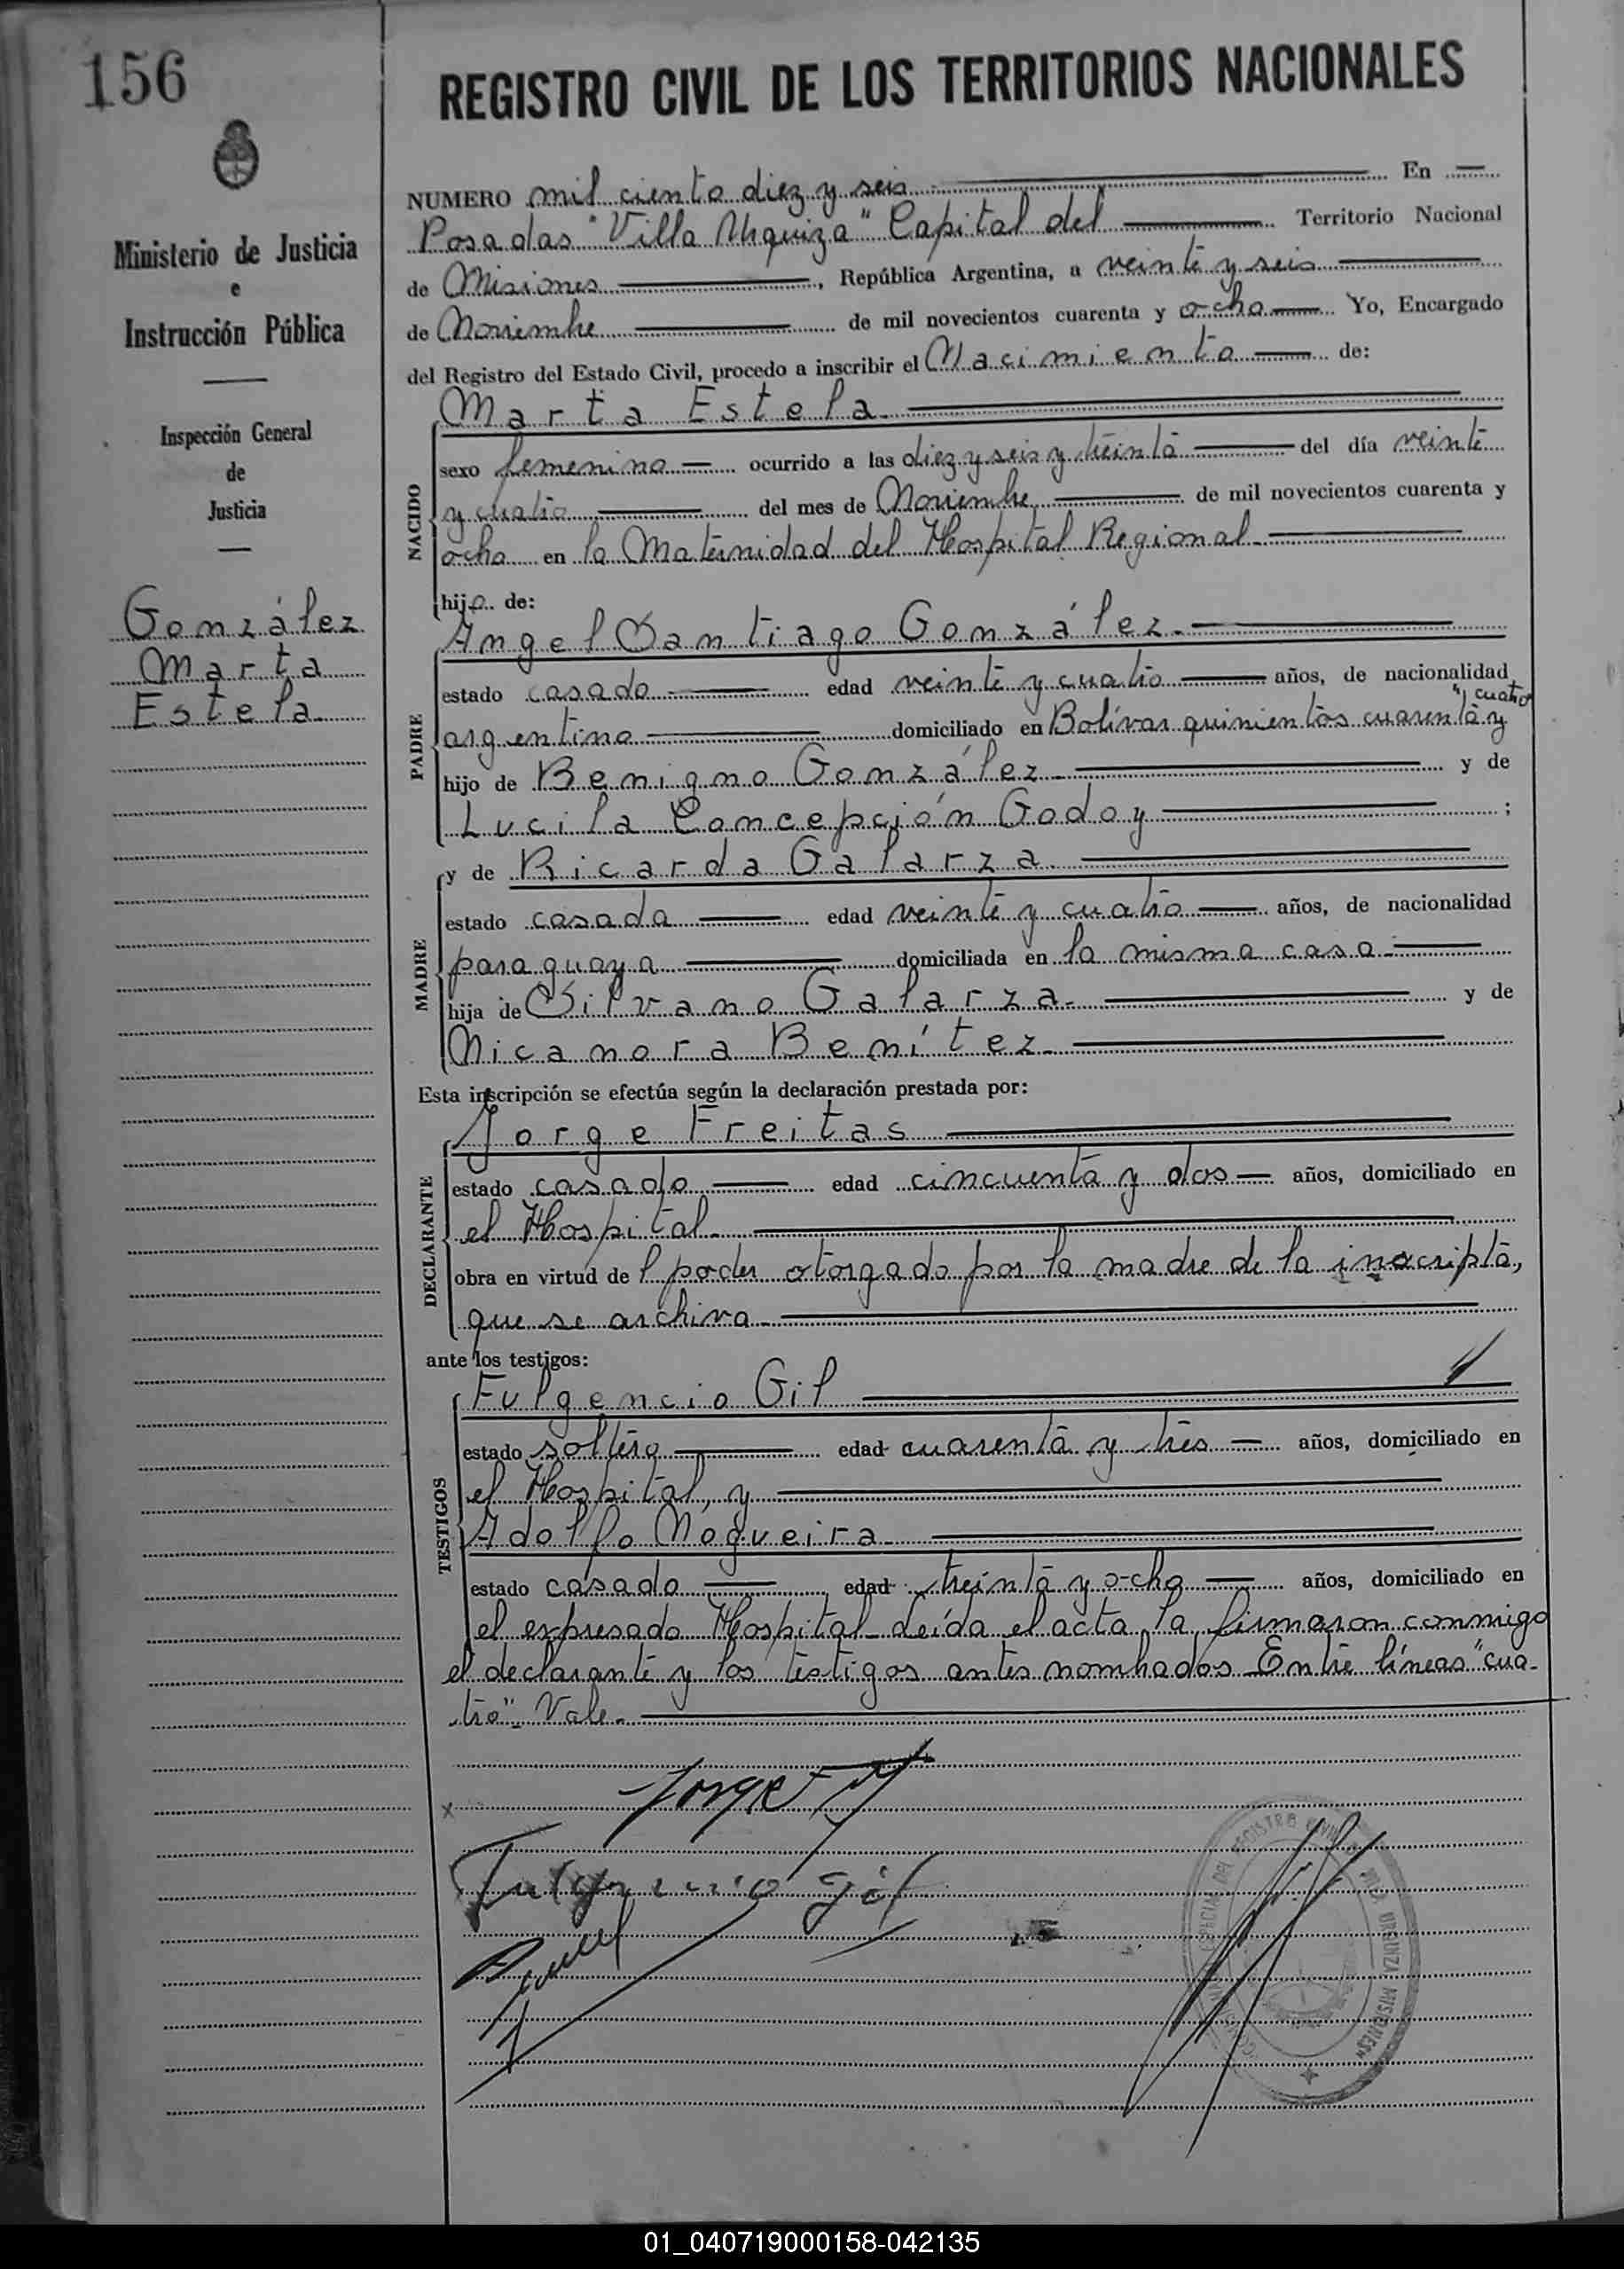 156
REGISTRO CIVIL DE LOS TERRITORIOS NACIONALES
Ministerio de Justicia
e
Instrucción Pública
Inspección General
de
Justicia
González
Marta
Estela
NUMERO mil ciento diez y seis En
Posadas "Villa Urquiza" Capital del Territorio Nacional
de Misiones, República Argentina, a veinte y seis
de Noviembre de mil novecientos cuarenta y ocho Yo, Encargado
del Registro del Estado Civil, procedo a inscribir el Nacimiento de:
Marta Estela.
NACIDO
sexo femenino ocurrido a las diez y seis y treinta del día veinte
y cuatro del mes de Noviembre de mil novecientos cuarenta y
ocho en la Maternidad del Hospital Regional
hija de:
Angel Santiago González.
PADRE
estado casado edad veinte y cuatro años, de nacionalidad
"cuatro"
argentina domiciliado en Bolívar quinientos cuarenta y
hijo de Benigno González y de
Lucila Concepción Godoy ;
y de Ricarda Galarza.
MADRE
estado casada edad veinte y cuatro años, de nacionalidad
paraguaya domiciliada en la misma casa
hija de Silvano Galarza. y de
Nicanora Benítez.
Esta inscripción se efectúa según la declaración prestada por:
Jorge Freitas
DECLARANTE
estado casado edad cincuenta y dos años, domiciliado en
el Hospital.
obra en virtud del poder otorgado por la madre de la inscripta,
que se archiva
ante los testigos:
Fulgencio Gil
TESTIGOS
estado soltero edad cuarenta y tres años, domiciliado en
el Hospital, y
Adolfo Nogueira.
estado casado edad treinta y ocho años, domiciliado en
el expresado Hospital. Leída el acta, la firmaron conmigo
el declarante y los testigos antes nombrados. Entre líneas "cua-
tro". Vale.
x
Jorge
Fulgencio Gil
REGISTRO CIVIL
VILLA URQUIZA MISIONES
01_040719000158-042135